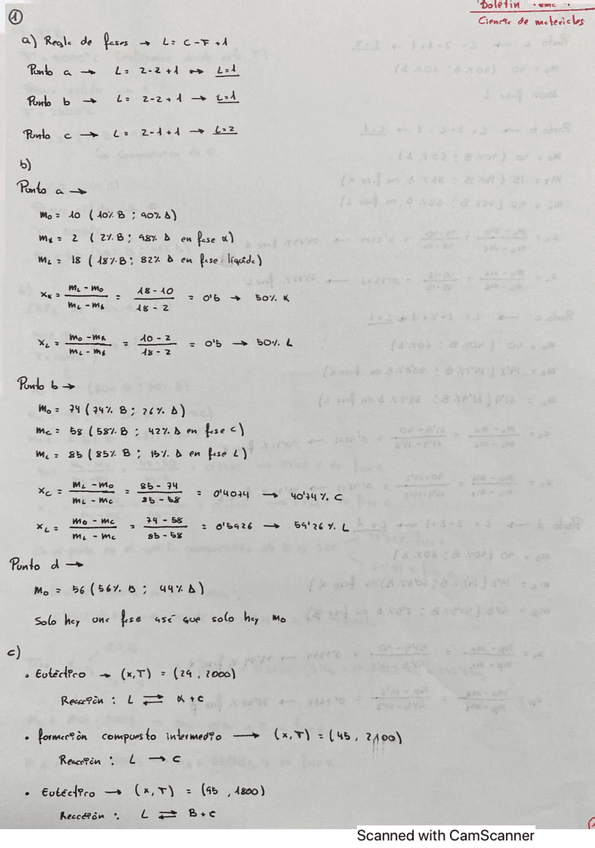 1
Boletín
Ciencia de materiales
a) Regla de fases → L = C-F+1
Punto a → L = 2-2+1 → L=1
Punto b → L = 2-2+1 → L=1
Punto c → L = 2-1+1 → L=2
b)
Punto a →
mo = 10 (10% B ; 90% A)
mα = 2 (2% B ; 98% A en fase α)
mL = 18 (18% B ; 82% A en fase líquida)
xα = mL - mo / mL - mα = 18-10 / 18-2 = 0'5 → 50% α
xL = mo - mα / mL - mα = 10-2 / 18-2 = 0'5 → 50% L
Punto b →
mo = 74 (74% B ; 26% A)
mc = 58 (58% B ; 42% A en fase C)
mL = 85 (85% B ; 15% A en fase L)
xc = mL - mo / mL - mc = 85-74 / 85-58 = 0'4074 → 40'74% C
xL = mo - mc / mL - mc = 74-58 / 85-58 = 0'5926 → 59'26% L
Punto d →
mo = 56 (56% B ; 44% A)
Solo hay una fase así que solo hay mo
c)
• Eutéctico → (x,T) = (29, 2000)
Reacción : L ⇄ α+C
• formación compuesto intermedio → (x,T) = (45, 2100)
Reacción : L → C
• Eutéctico → (x,T) = (95, 1800)
Reacción : L ⇄ B+C
Scanned with CamScanner